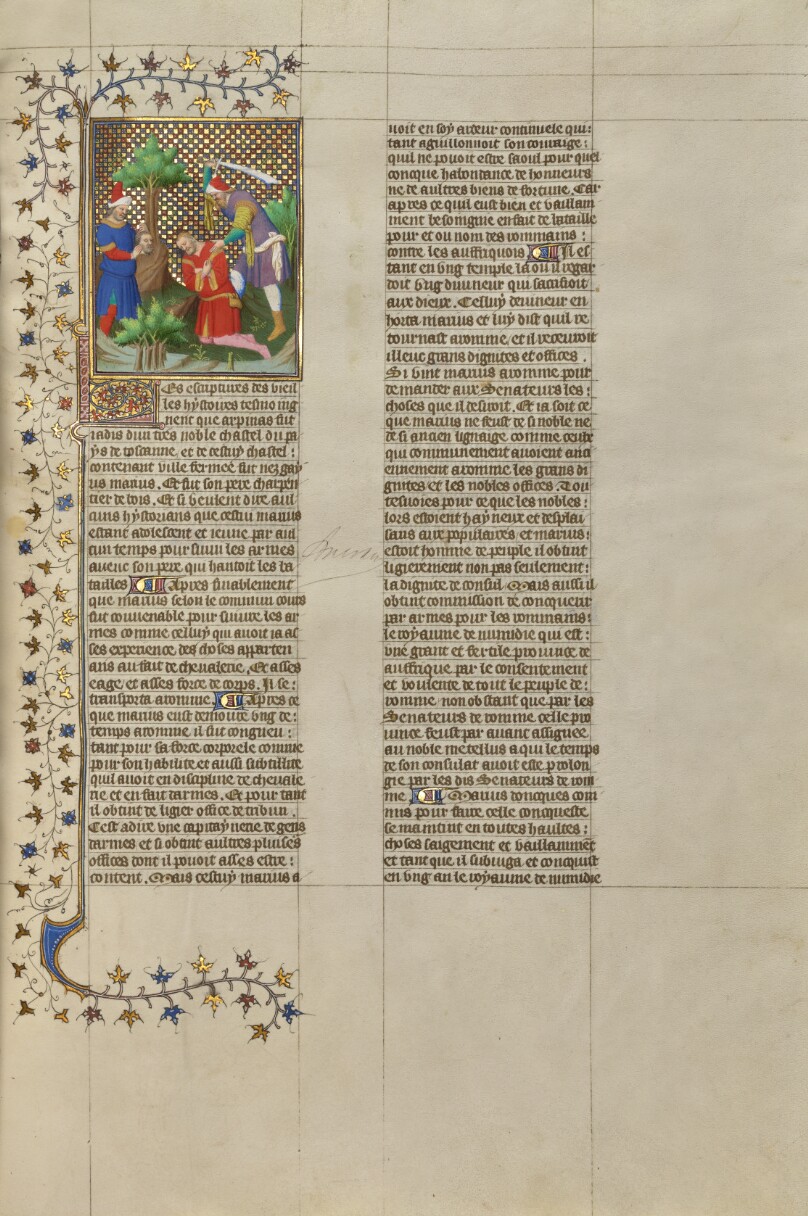 Es escriptures des vieil
les hystoires tesmoing
nent que arpinas fut
iadis dun tres noble chastel du pa
ys de toscanne, et de cestuy chastel:
contenant ville fermee fut nez gay
us marius. Et fut son pere charpen
tier de bois. Et si veulent dire aul
cuns hystorians que cestui marius
estant adolescent et ieune par aul
cun temps pour suiui les armes
auecue son pere qui hantoit les ba
tailles Apres finablement
que marius selon le commun cours
fut conuenable pour suiure les ar
mes comme celluy qui auoit ia as
ses experience des choses apparten
ans au fait de cheualerie, Et asses
eage, et asses force de corps. Il se:
transporta aromme. Apres ce
que marius eust demoure vng de:
temps aromme il fut congneu:
tant pour sa force corporele comme
pour son habilite et aussi subtilite
quil auoit en discipline de cheuale
rie et en fait darmes. Et pour tant
il obtint de ligier office de tribun.
Cest adire vne capitaynerie de gens
darmes et si obtint aultres pluises
offices dont il pouoit asses estre:
content. Mais cestuy marius a
uoit en soy ardeur continuele qui:
tant aguillonnoit son couraige:
quil ne pouoit estre saoul pour quel
conque habondance de honneurs
ne de aultres biens de fortune. Car
apres ce quil eust bien et vaillam
ment besongne en fait de bataille
pour et ou nom des rommains:
contre les auffriquois Il es
tant en vng temple la ou il regar
doit vng diuineur qui sacrifioit
aux dieux. Celluy deuineur en
horta marius et luy dist quil re
tournast aromme, et il receuroit
illeuc grans dignites et offices.
Si vint marius aromme pour
demander aux Senateurs les:
choses que il desiroit. Et ia soit ce
que marius ne feust de si noble ne
de si ancien lignaige comme ceulx
qui communement auoient anci
ennement aromme les grans di
gnites et les nobles offices. Tou
tesuoies pour ce que les nobles:
lors estoient hayneux et desplai
sans aux populaires, et marius:
estoit homme de peuple il obtint
ligierement non pas seulement:
la dignite de consul Mais aussi il
obtint commission de conquerir
par armes pour les rommains:
le royaume de numidie qui est:
vne grant et fertile prouince de
auffrique par le consentement
et voulente de tout le peuple de:
romme non obstant que par les
Senateurs de romme celle pro
uince feust par auant assignee
au noble metellus a qui le temps
de son consulat auoit este prolon
gie par les dis Senateurs de rom
me. Marius doncques com
mis pour faire celle conqueste
se maintint en toutes haultes:
choses saigement et vaillamment
et tant que il subiuga et conquist
en vng an le royaume de numidie